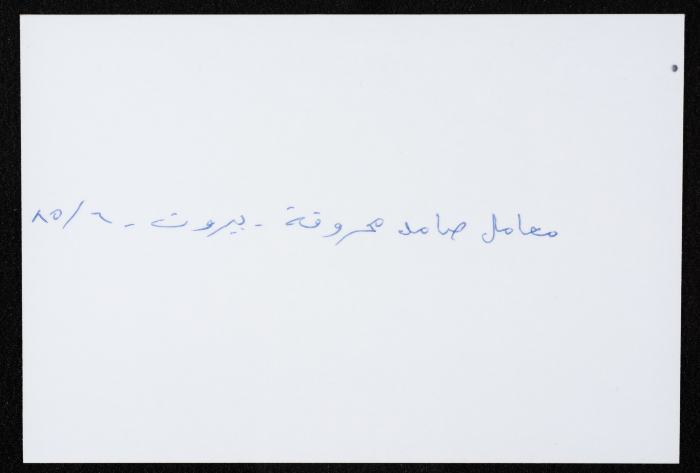 معامل صامد محروقة - بيروت - ٦/٨٥